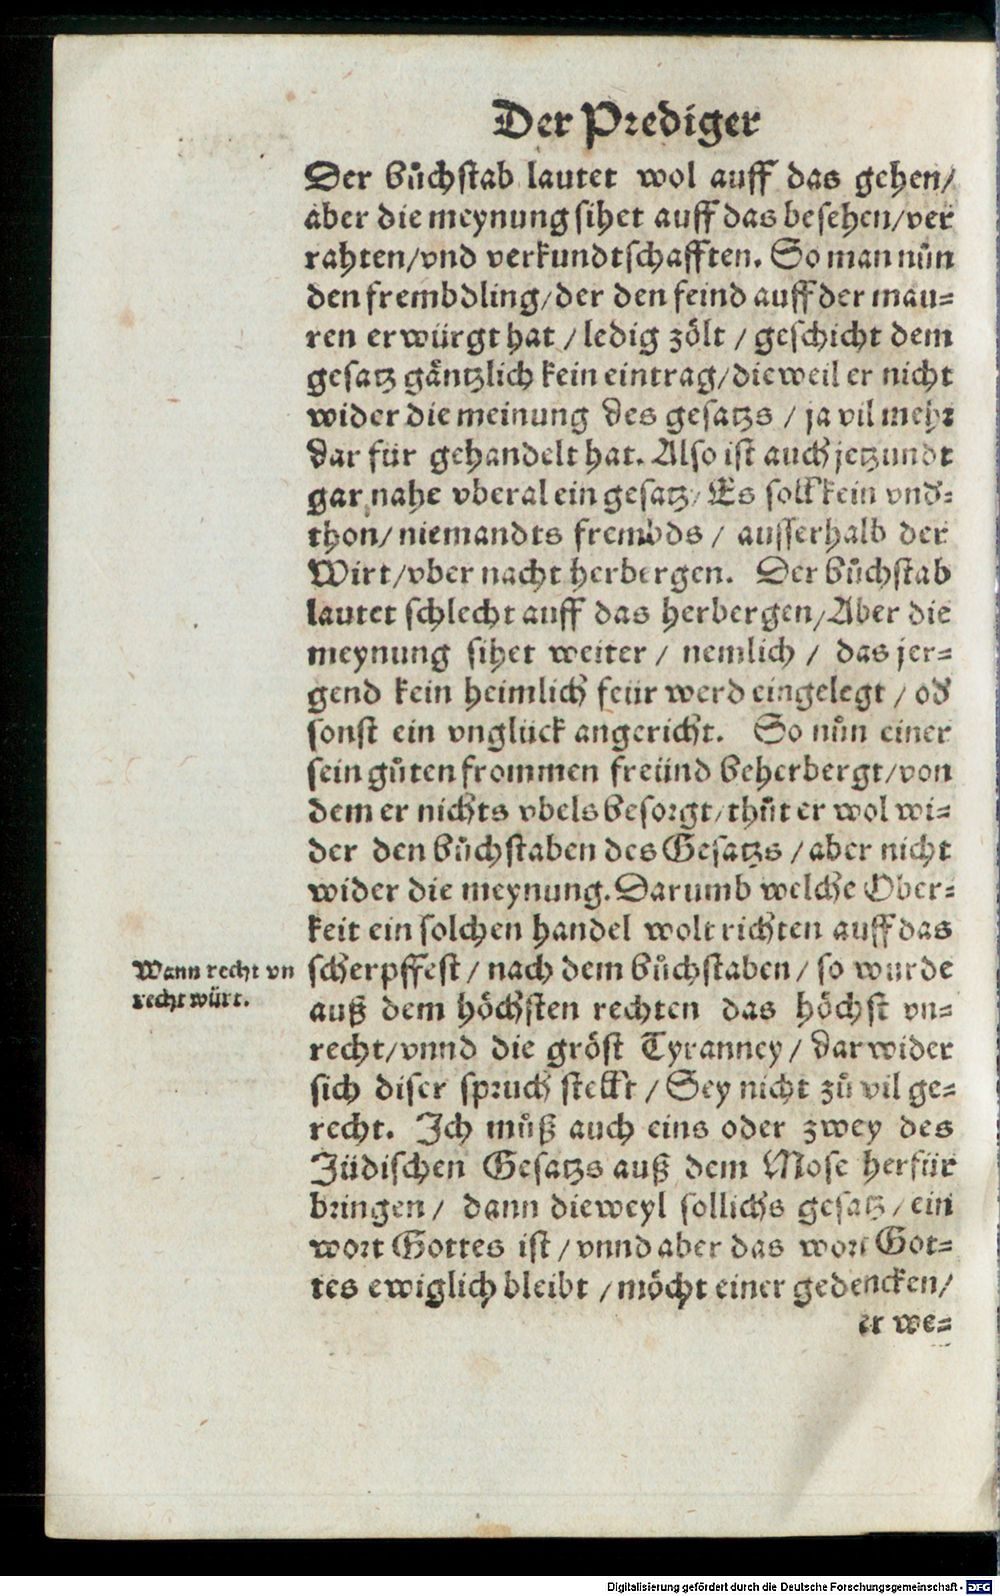 Der Prediger
Der bůchstab lautet wol auff das gehen/
aber die meynung sihet auff das besehen/ver
rahten/vnd verkundtschafften. So man nůn
den frembdling/der den feind auff der mau-
ren erwürgt hat / ledig zölt / geschicht dem
gesatz gäntzlich kein eintrag/dieweil er nicht
wider die meinung des gesatzs / ja vil mehr
dar für gehandelt hat. Also ist auch jetzundt
gar nahe vberal ein gesatz/ Es soll kein vnd-
thon/ niemandts frembds / ausserhalb der
Wirt/vber nacht herbergen. Der bůchstab
lautet schlecht auff das herbergen/Aber die
meynung sihet weiter / nemlich / das jer-
gend kein heimlich feür werd eingelegt / od
sonst ein vnglück angericht. So nůn einer
sein gůten frommen freünd beherbergt/von
dem er nichts vbels besorgt/thůt er wol wi-
der den bůchstaben des Gesatzs / aber nicht
wider die meynung. Darumb welche Ober-
keit ein solchen handel wolt richten auff das
Wann recht vn
recht würt.
scherpffest / nach dem bůchstaben / so wurde
auß dem höchsten rechten das höchst vn-
recht/vnnd die gröst Tyranney / dar wider
sich diser spruch stellt / Sey nicht zů vil ge-
recht. Ich můß auch eins oder zwey des
Jüdischen Gesatzs auß dem Mose herfür
bringen / dann dieweyl sollichs gesatz / ein
wort Gottes ist / vnnd aber das wort Got-
tes ewiglich bleibt / möcht einer gedencken/
er we-
Digitalisierung gefördert durch die Deutsche Forschungsgemeinschaft - DFG